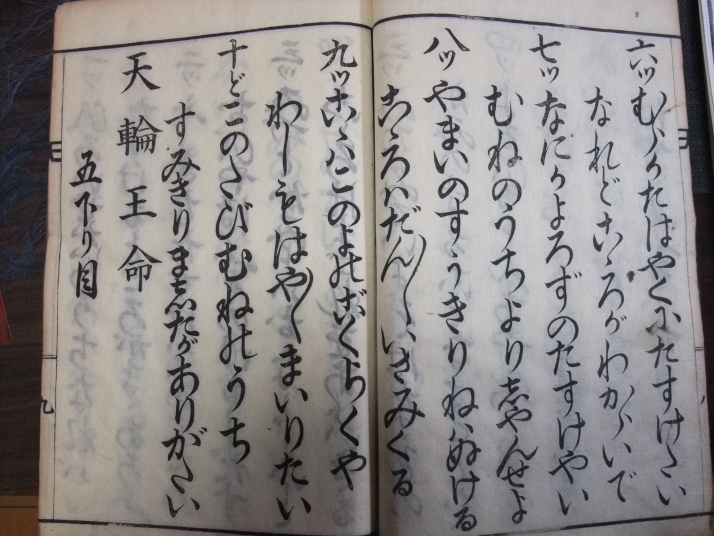 六ツむらかたはやくにたすけたい
なれどこゝろがわからいで
七ツなにかよろずのたすけやい
むねのうちよりしやんせよ
八ツやまいのすつきりねハぬける
こゝろハだん〳〵いさみくる
九ツこゝハこのよのごくらくや
わしもはや〳〵まいりたい
十どこのたびむねのうち
すみきりましたがありがたい
天輪王命
五下り目